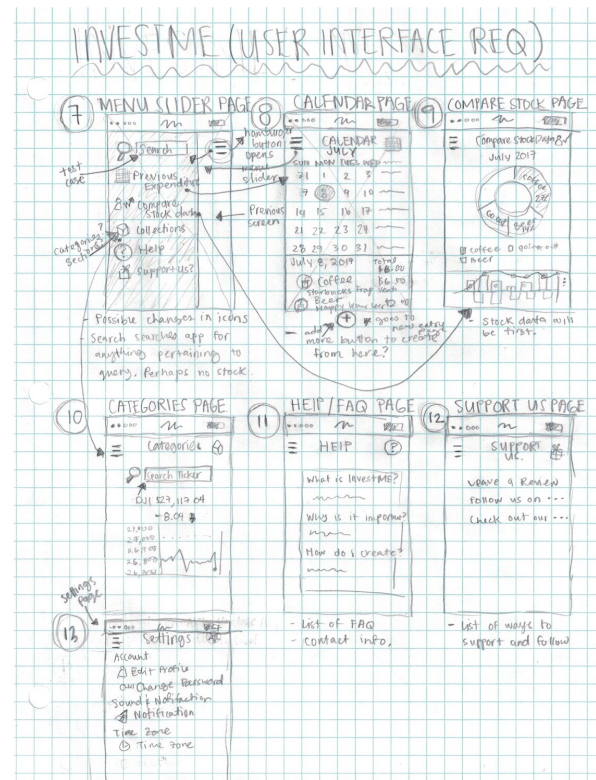 INVESTME (USER INTERFACE REQ)
7 MENU SLIDER PAGE
Search
Previous
Expenditure
Compare
stock data
Collections
Help
Support us?
test
case
categories?
hamburger
button
opens
menu
slider
Previous
screen
- Possible changes in icons
- Search searches app for
anything pertaining to
query. Perhaps no stock.
8 CALENDAR PAGE
CALENDAR
JULY
SUN MON TUES WED
31 1 2 3
7 8 9 10
14 15 16 17
21 22 23 24
28 29 30 31
July 8, 2017 Total
Coffee $6.50
Starbucks Frap Venti
Beer
Happy Hour
- add + goes to
new entry
page
more button to create
from here?
9 COMPARE STOCK PAGE
Compare Stock Data
July 2017
Coffee
Beer
coffee going out
Beer
- Stock data will
be first.
10 CATEGORIES PAGE
Categories
Search Ticker
DJI $27,117.04
-8.04
- settings
page
11 HELP/FAQ PAGE
HELP ?
What is InvestME?
Why is it important?
How do I create?
- List of FAQ
- contact info.
12 SUPPORT US PAGE
SUPPORT
US.
Leave a Review
Follow us on ...
Check out our ...
- List of ways to
support and follow
13
Settings
Account
Edit Profile
Change Password
Sound & Notification
Notification
Time Zone
Time Zone